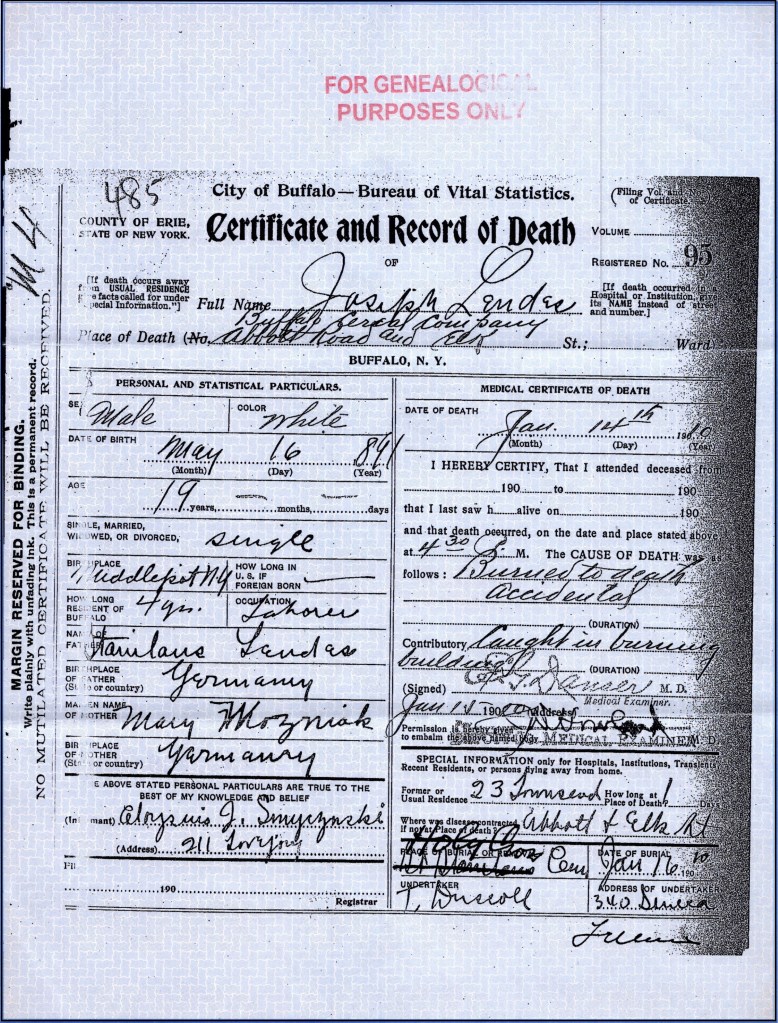 FOR GENEALOGICAL
PURPOSES ONLY
485
City of Buffalo—Bureau of Vital Statistics.
(Filing Vol. and No.
of Certificate.
COUNTY OF ERIE,
STATE OF NEW YORK.
Certificate and Record of Death
VOLUME
OF
REGISTERED No. 95
[If death occurs away
from USUAL RESIDENCE
give facts called for under
Special Information."]
[If death occurred in
Hospital or Institution, give
its NAME instead of street
and number.]
Full Name Joseph Lendes
Buffalo Cereal Company
Place of Death (No. Abbott Road and Elk St.; Ward
BUFFALO, N. Y.
MARGIN RESERVED FOR BINDING.
Write plainly with unfading ink. This is a permanent record.
NO MUTILATED CERTIFICATE WILL BE RECEIVED.
PERSONAL AND STATISTICAL PARTICULARS.
SEX Male
COLOR White
DATE OF BIRTH May 16 891
(Month) (Day) (Year)
AGE
19 years, months, days
SINGLE, MARRIED,
WIDOWED, OR DIVORCED, single
BIRTHPLACE Middleport N.Y
HOW LONG IN
U. S. IF
FOREIGN BORN
HOW LONG
RESIDENT OF
BUFFALO 4 yrs.
OCCUPATION Laborer
NAME OF
FATHER Stanilaus Lendes
BIRTHPLACE
OF FATHER
(State or country) Germany
MAIDEN NAME
OF MOTHER Mary Wozniak
BIRTHPLACE
OF MOTHER
(State or country) Germany
THE ABOVE STATED PERSONAL PARTICULARS ARE TRUE TO THE
BEST OF MY KNOWLEDGE AND BELIEF
(Informant) Aloysius J.
(Address) 211 Lovejoy
190
Registrar
MEDICAL CERTIFICATE OF DEATH
DATE OF DEATH Jan. 14th 1910
(Month) (Day) (Year)
I HEREBY CERTIFY, That I attended deceased from
190 to 190
that I last saw h alive on 190
and that death occurred, on the date and place stated above
at 4 30 M. The CAUSE OF DEATH was as
follows: Burned to death
accidental
(DURATION)
Contributory Caught in burning
building
(DURATION)
(Signed) Danser M. D.
Medical Examiner.
Jan 15 190 (Address)
Permission is hereby given
to embalm the above named body.
MEDICAL EXAMINER
M. D.
SPECIAL INFORMATION only for Hospitals, Institutions, Transients,
Recent Residents, or persons dying away from home.
Former or
Usual Residence 23 Townsend
How long at
Place of Death? 1 Days
Where was disease contracted,
if not at Place of death? Abbott & Elk St
Holy Cross
PLACE OF BURIAL OR REMOVAL
St Stanilaus Cem
DATE OF BURIAL
Jan 16 1910
UNDERTAKER
T, Driscoll
ADDRESS OF UNDERTAKER
340 Seneca